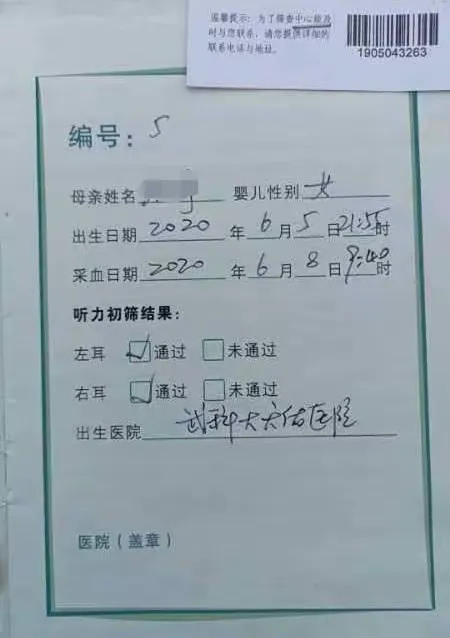 温馨提示：为了筛查中心能及
时与您联系，请您提供详细的
联系电话与地址。
1905043263
编号：5
母亲姓名 婴儿性别 女
出生日期 2020 年 6 月 5 日 21:55 时
采血日期 2020 年 6 月 8 日 9:40 时
听力初筛结果：
左耳 通过 未通过
右耳 通过 未通过
出生医院 武科大天佑医院
医院（盖章）